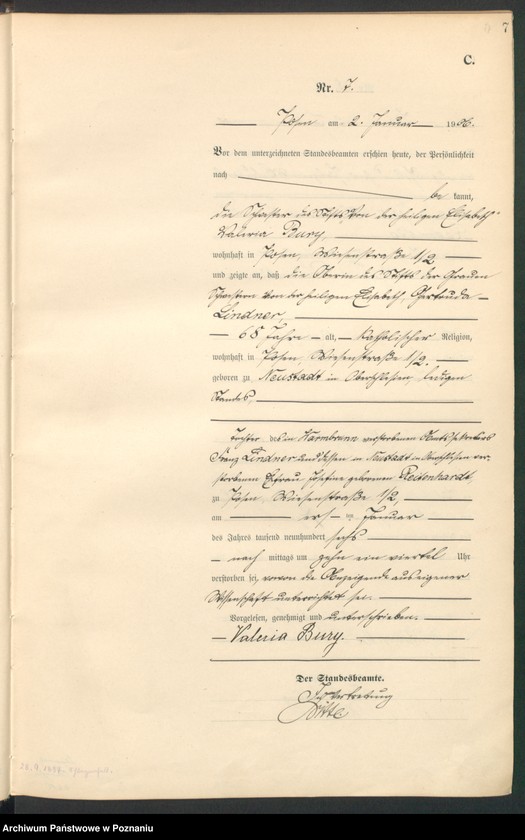 7
C.
Nr. 7.
Posen am 2. Januar 1906.
Vor dem unterzeichneten Standesbeamten erschien heute, der Persönlichkeit
nach
be kannt,
die Schwester des Stifts von der heiligen Elisabeth
Valeria Bury,
wohnhaft in Posen, Wiesenstraße 1/2
und zeigte an, daß die Oberin des Stifts der Grauen
Schwestern von der heiligen Elisabeth, Gertruda
Lindner,
65 Jahre alt, katholischer Religion,
wohnhaft in Posen, Wiesenstraße 1/2.
geboren zu Neustadt in Oberschlesien, ledigen
Standes,
Tochter des in Warmbrunn verstorbenen
Franz Lindner und dessen in Neustadt in Oberschlesien ver-
storbenen Ehefrau Josefine geborenen Reitenhardt,
zu Posen, Wiesenstraße 1/2,
am ersten Januar
des Jahres tausend neunhundert sechs
nach mittags um zehn ein viertel Uhr
verstorben sei, wovon die Anzeigende aus eigener
Wissenschaft unterrichtet sei.
Vorgelesen, genehmigt und unterschrieben.
Valeria Bury
Der Standesbeamte.
In Vertretung
Archiwum Państwowe w Poznaniu